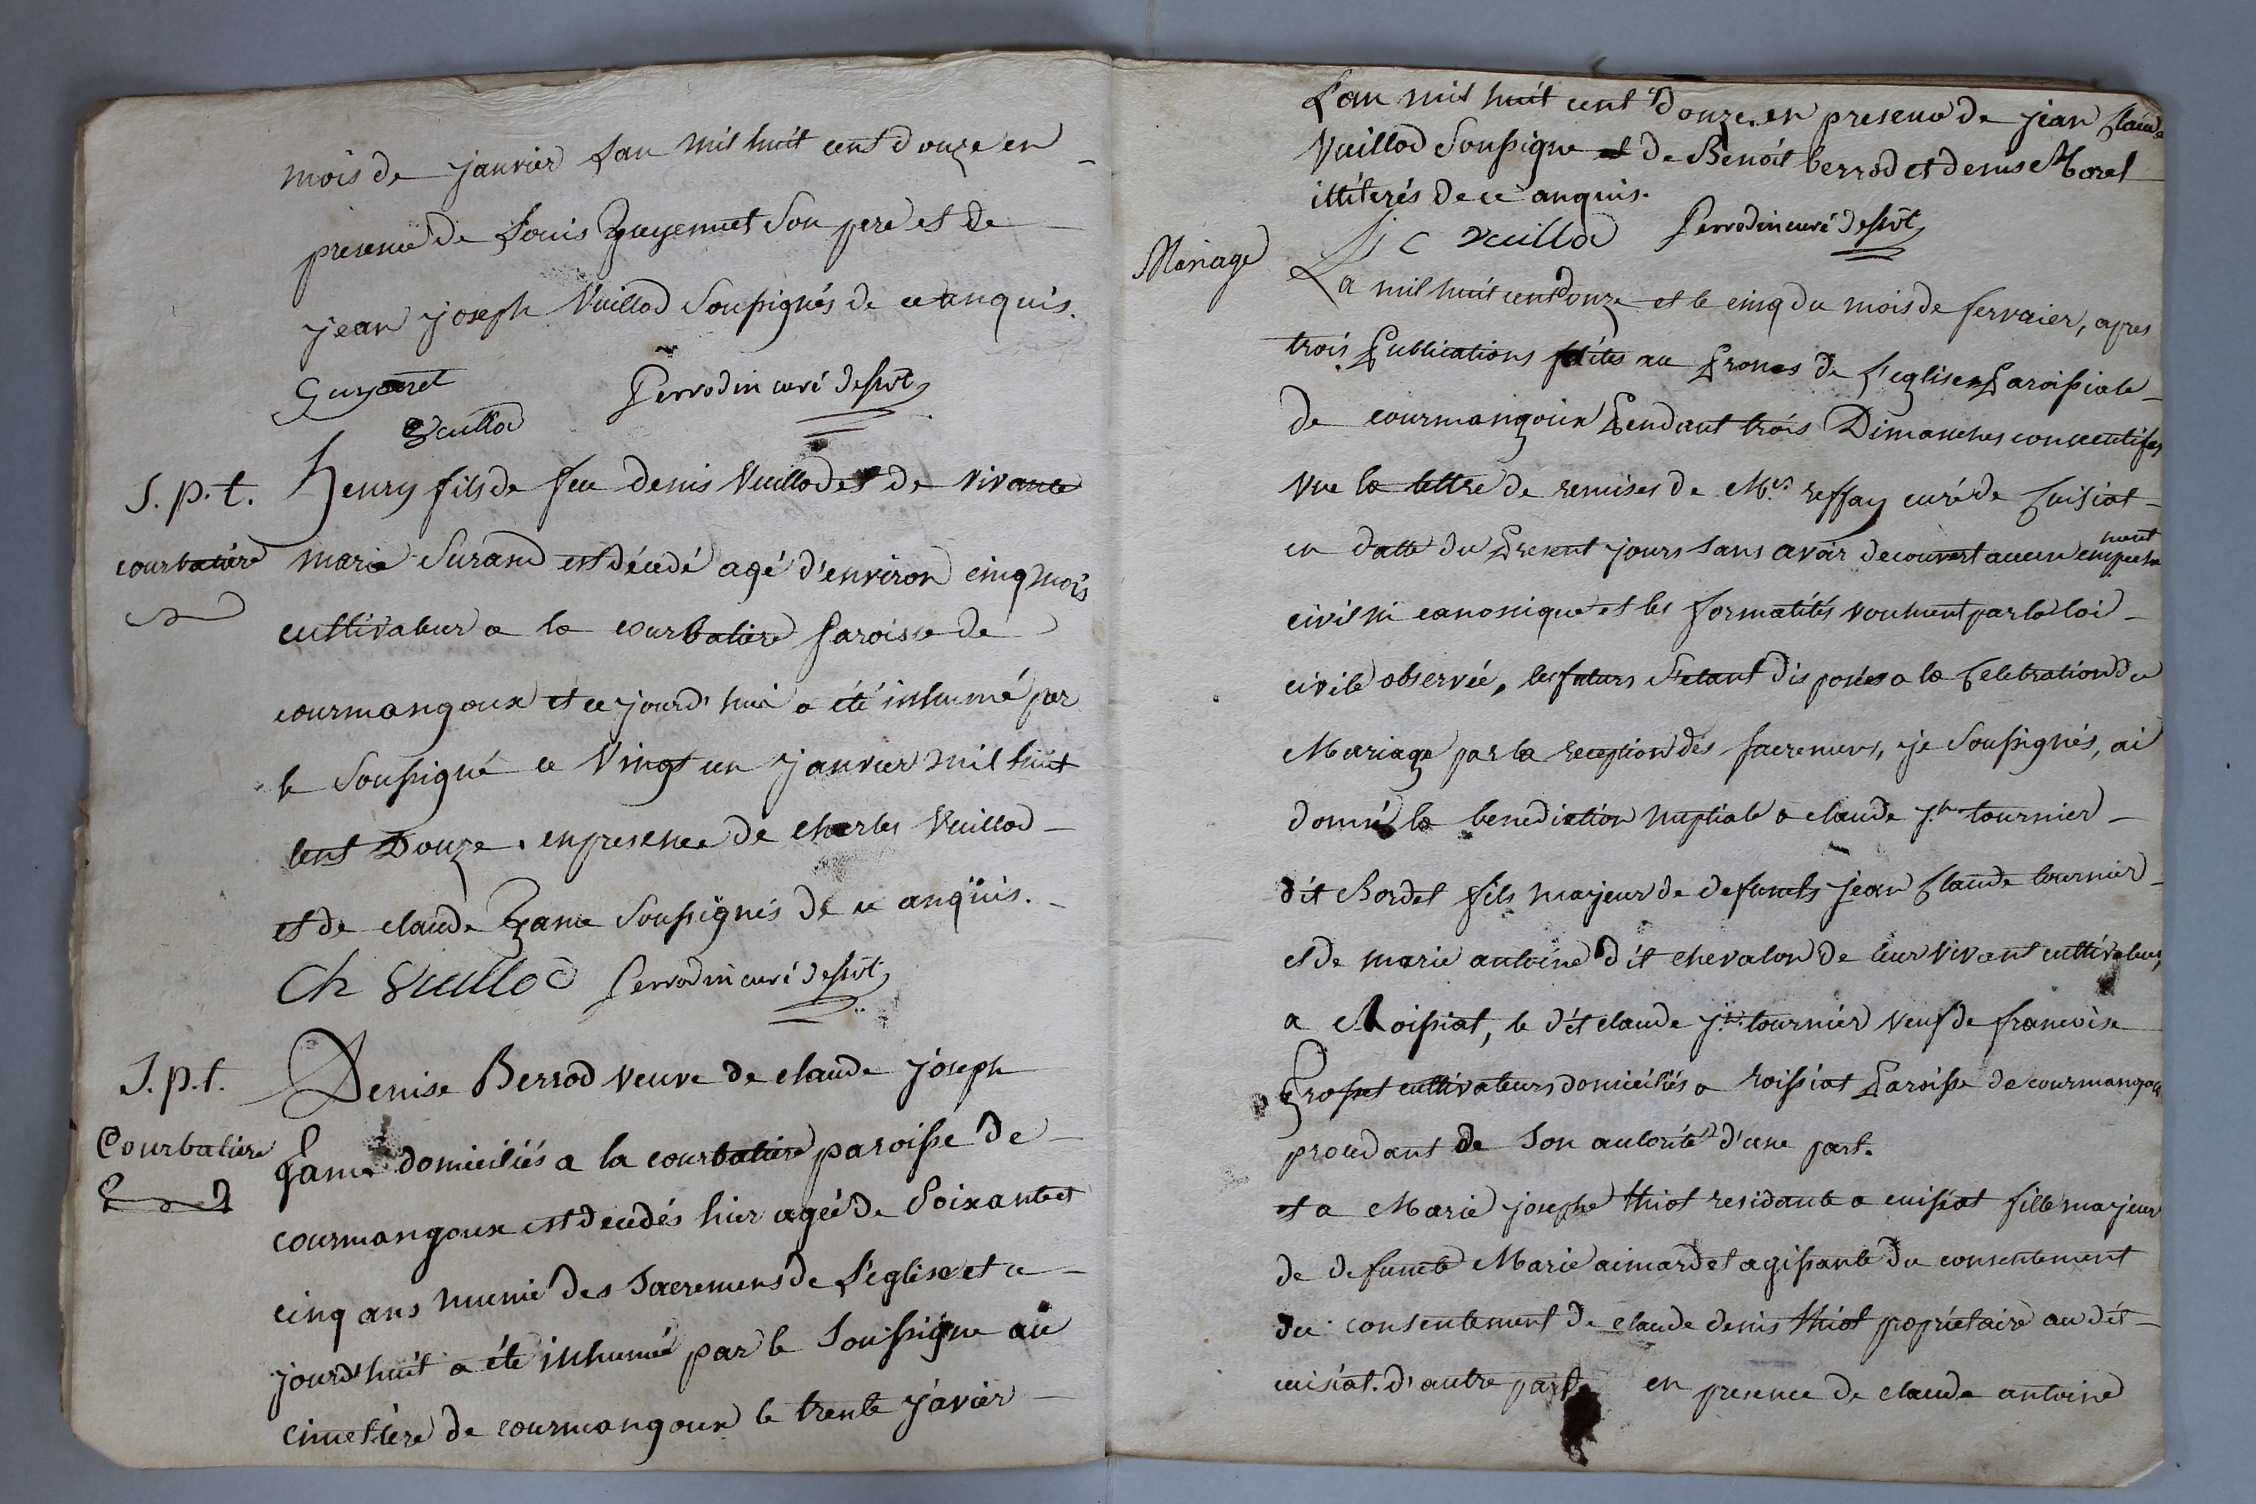 mois de janvier L'an mil huit cent douze en
presence de Louis Guyennet Son pere et de
jean joseph Vuillod Soussignés de ce anquis.
Guyonet Perrodin curé dessvt
Vuillod
S. p. t. henry fils de feu denis Vuillod et de vivante
courbatiére marie Surand est décédé agé d'environ cinq mois
cultivateur a la courbatiere Paroisse de
courmangoux et ce jourd'hui a été inhumé par
le Soussigné ce Vingt un janvier mil huit
cent Douze. en presence de charles Vuillod
et de claude Game Soussignés de ce anquis.
Ch Vuillod Perrodin curé dessvt
S. p. t. Denise Berrod veuve de claude joseph
Courbatiere Game domiciliés a la courbatiere paroisse de
courmangoux est decedés hier agée de Soixante et
cinq ans munie des Sacremens de L'eglise et ce
jourd'huit a éte inhumée par le Soussigne au
cimetiére de courmangoux le trente javier
L'an mil huit cent Douze. en presence de jean Claude
Vuillod Soussigne et de Benoit berrod et denis Morel
illiterés de ce anquis.
J C vuillod Perrodin curé dessvt
Mariage La mil huit cent Donze et le cinq du mois de fervaier, apres
trois Publications faites au Prones de L'eglise Paroissiale
de courmangoux Pendant trois Dimanches consecutifes
vue la lettre de remises de Mr. reffay curé de Cuisiat
en datte du Present jours sans avoir decouvert aucun empeche
ment
civil ni canonique et les formalités voulment par la loi
civile observée, les futurs S'etant disposées a la Celebration du
Mariage par la reception des Sacremens, je Soussignés, ai
donné la benediction nuptiale a claude jh. tournier
dit Bordet fils majeur de defunts jean Claude tournier
et de marie antoine dit chevalon de leur vivant cultivateurs
a Roissiat, le dit claude jh. tournier veuf de francoise
Grosset cultivateurs domiciliés a roissiat Paroisse de courmangoux
procedant de Son autorité d'une part.
et a Marie josephe thiot residante a cuisiat fille majeur
de defunte Marie aimard et agissante du consentement
du consentement de claude denis thiot propriétaire au dit
cuisiat. d'autre part en presence de claude antoine